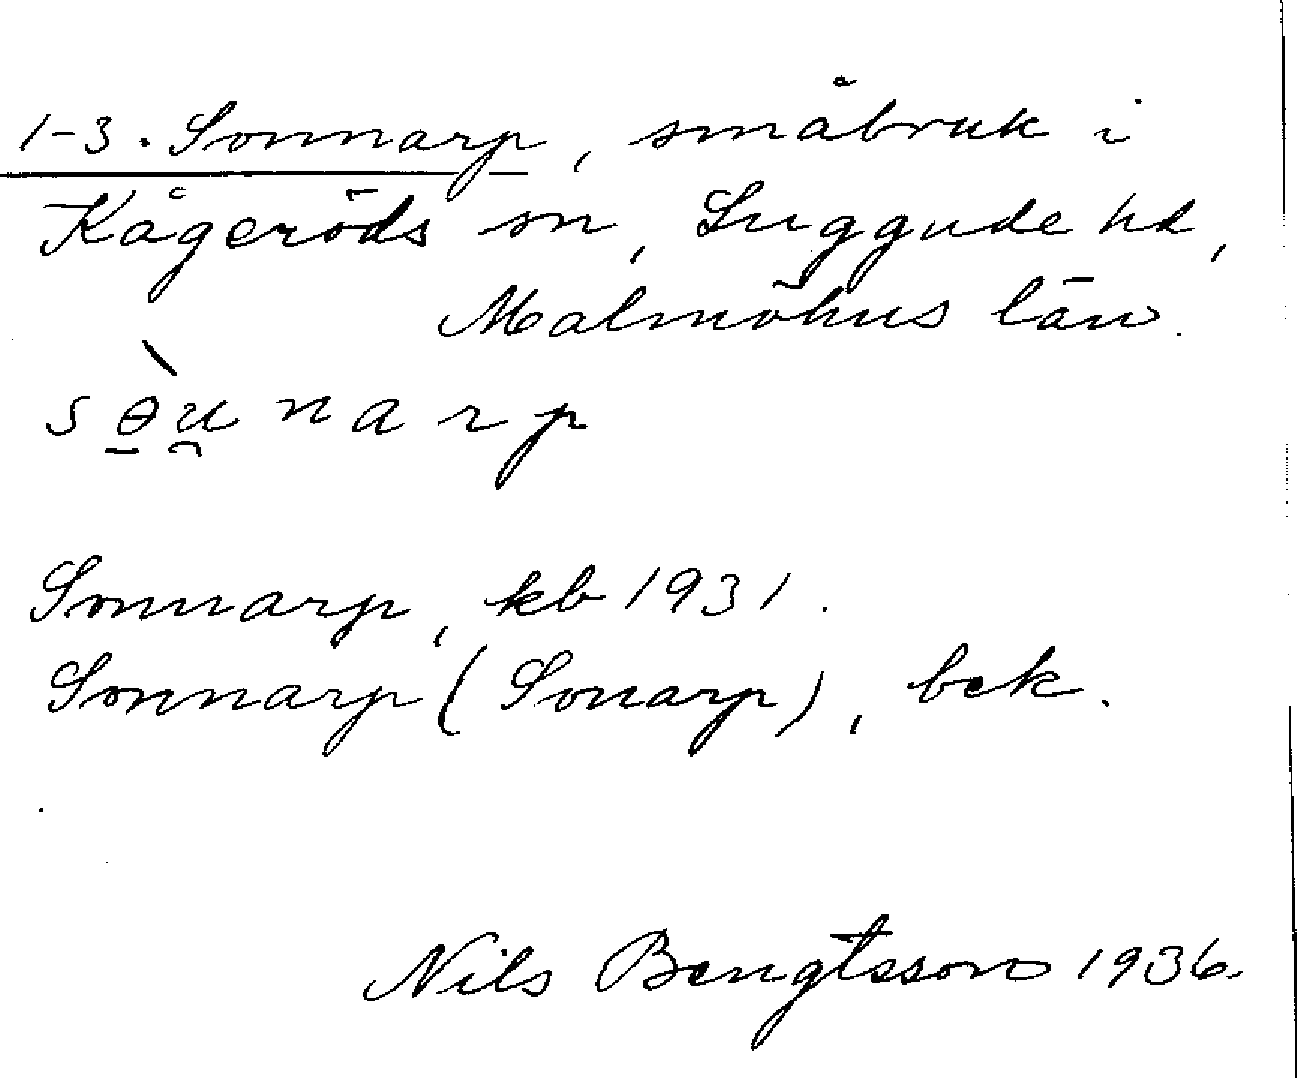 1-3. Sonnarp, småbruk i
Kågeröds sn, Luggude hd,
Malmöhus län.
sɵ̠̀u̯narp
Sonnarp, kb 1931.
Sonnarp (Sonarp), bek.
Nils Bengtsson 1936.